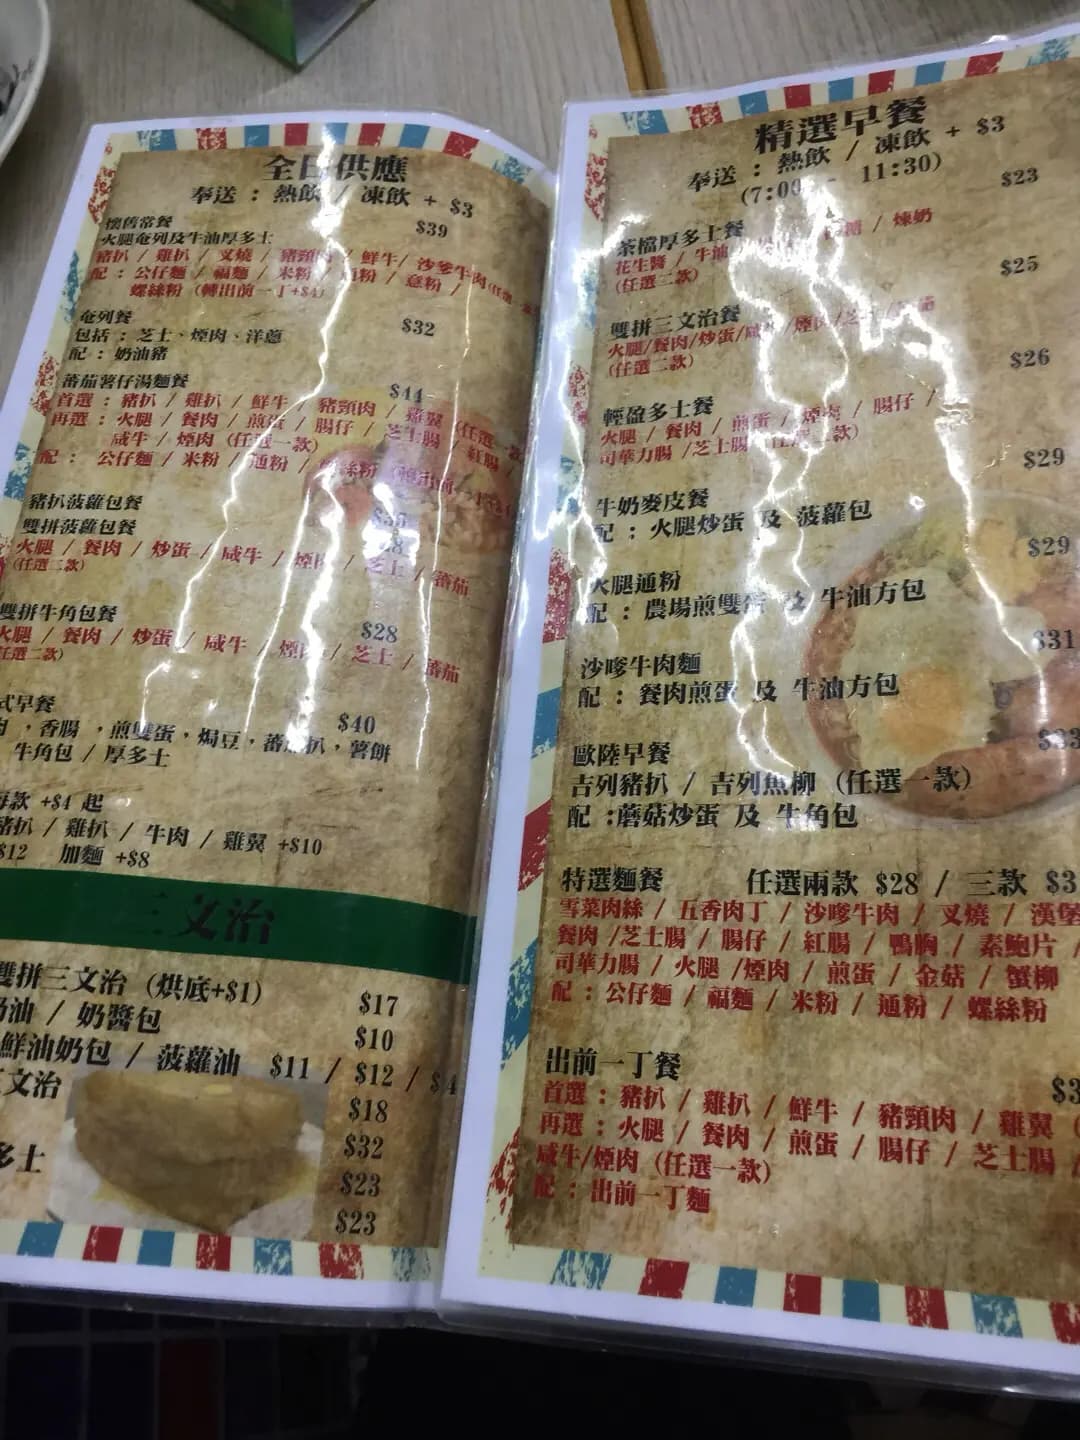 全日供應
奉送 : 熱飲 / 凍飲 + $3
懷舊常餐 $39
火腿奄列及牛油厚多士
豬扒 / 雞扒 / 叉燒 / 豬頸肉 / 鮮牛 / 沙爹牛肉
配 : 公仔麵 / 福麵 / 米粉 / 通粉 / 意粉 /
螺絲粉 (轉出前一丁+$4)
奄列餐 $32
包括 : 芝士、煙肉、洋蔥
配 : 奶油豬
蕃茄薯仔湯麵餐 $44
首選 : 豬扒 / 雞扒 / 鮮牛 / 豬頸肉 / 雞翼 (任選一款)
再選 : 火腿 / 餐肉 / 煎蛋 / 腸仔 / 芝士腸 / 紅腸 /
咸牛 / 煙肉 (任選一款)
配 : 公仔麵 / 米粉 / 通粉 / 螺絲粉
豬扒菠蘿包餐
雙拼菠蘿包餐
火腿 / 餐肉 / 炒蛋 / 咸牛 / 煙肉 / 芝士 / 蕃茄
(任選二款)
雙拼牛角包餐 $28
火腿 / 餐肉 / 炒蛋 / 咸牛 / 煙肉 / 芝士 / 蕃茄
任選二款)
式早餐 $40
肉 ，香腸 ，煎雙蛋，焗豆，蕃茄扒，薯餅
牛角包 / 厚多士
每款 +$4 起
豬扒 / 雞扒 / 牛肉 / 雞翼 +$10
$12 加麵 +$8
三文治
雙拼三文治 (烘底+$1) $17
奶油 / 奶醬包 $10
鮮油奶包 / 菠蘿油 $11 / $12 /
文治 $18
$32
多士 $23
$23
精選早餐
奉送 : 熱飲 / 凍飲 + $3
(7:00 - 11:30)
茶檔厚多士餐 $23
花生醬 / 牛油 / 煉奶
(任選二款)
雙拼三文治餐 $25
火腿/餐肉/炒蛋/咸牛/煙肉/芝士/蕃茄
(任選二款)
輕盈多士餐 $26
火腿 / 餐肉 / 煎蛋 / 煙肉 / 腸仔 /
司華力腸 /芝士腸 (任選二款)
牛奶麥皮餐 $29
配 : 火腿炒蛋 及 菠蘿包
火腿通粉 $29
配 : 農場煎雙蛋 及 牛油方包
沙嗲牛肉麵 $31
配 : 餐肉煎蛋 及 牛油方包
歐陸早餐 $33
吉列豬扒 / 吉列魚柳 (任選一款)
配 :蘑菇炒蛋 及 牛角包
特選麵餐 任選兩款 $28 / 三款 $3
雪菜肉絲 / 五香肉丁 / 沙嗲牛肉 / 叉燒 / 漢堡
餐肉 /芝士腸 / 腸仔 / 紅腸 / 鴨胸 / 素鮑片 /
司華力腸 / 火腿 /煙肉 / 煎蛋 / 金菇 / 蟹柳
配 : 公仔麵 / 福麵 / 米粉 / 通粉 / 螺絲粉
出前一丁餐 $3
首選 : 豬扒 / 雞扒 / 鮮牛 / 豬頸肉 / 雞翼 (
再選 : 火腿 / 餐肉 / 煎蛋 / 腸仔 / 芝士腸 /
咸牛/煙肉 (任選一款)
配 : 出前一丁麵